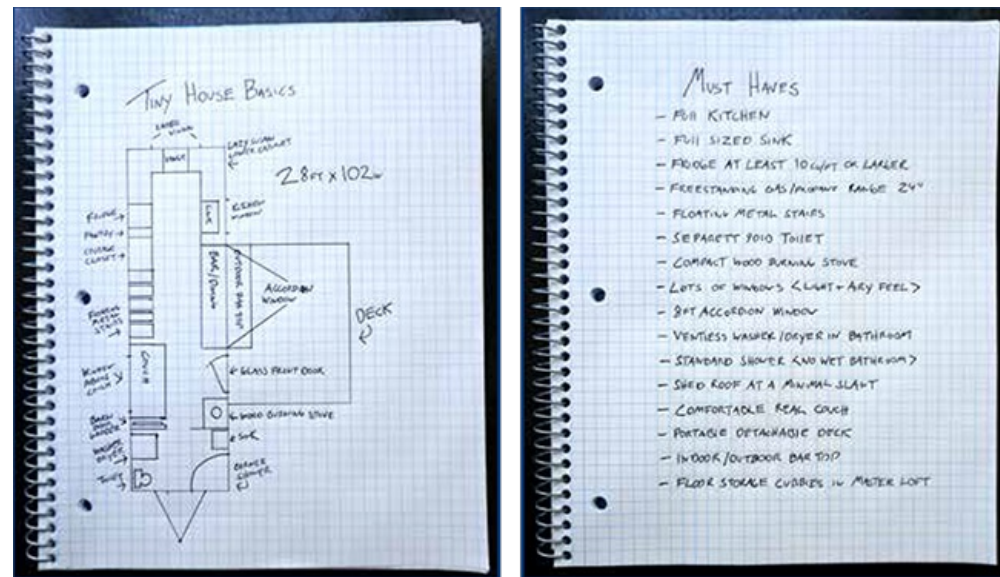 TINY HOUSE BASICS
WINDOW
RANGE
LAZY SUSAN
CORNER CABINET
28FT X 102in
FRIDGE
PANTRY
STORAGE
CLOSET
SINK
KITCHEN
WINDOW
BAR/DINING
OUTDOOR BAR TOP
ACCORDION
WINDOW
DECK
FLOATING
METAL
STAIRS
COUCH
WINDOW
ABOVE
COUCH
GLASS FRONT DOOR
WOOD BURNING STOVE
BARN
DOOR
WASHER
DRYER
SINK
TOILET
CORNER
SHOWER
MUST HAVES
- FULL KITCHEN
- FULL SIZED SINK
- FRIDGE AT LEAST 10 CU/FT OR LARGER
- FREESTANDING GAS/PROPANE RANGE 24"
- FLOATING METAL STAIRS
- SEPARETT 9010 TOILET
- COMPACT WOOD BURNING STOVE
- LOTS OF WINDOWS <LIGHT - ARY FEEL>
- 8FT ACCORDION WINDOW
- VENTLESS WASHER/DRYER IN BATHROOM
- STANDARD SHOWER <NO WET BATHROOM>
- SHED ROOF AT A MINIMAL SLANT
- COMFORTABLE REAL COUCH
- PORTABLE DETACHABLE DECK
- INDOOR/OUTDOOR BAR TOP
- FLOOR STORAGE CUBBIES IN MASTER LOFT